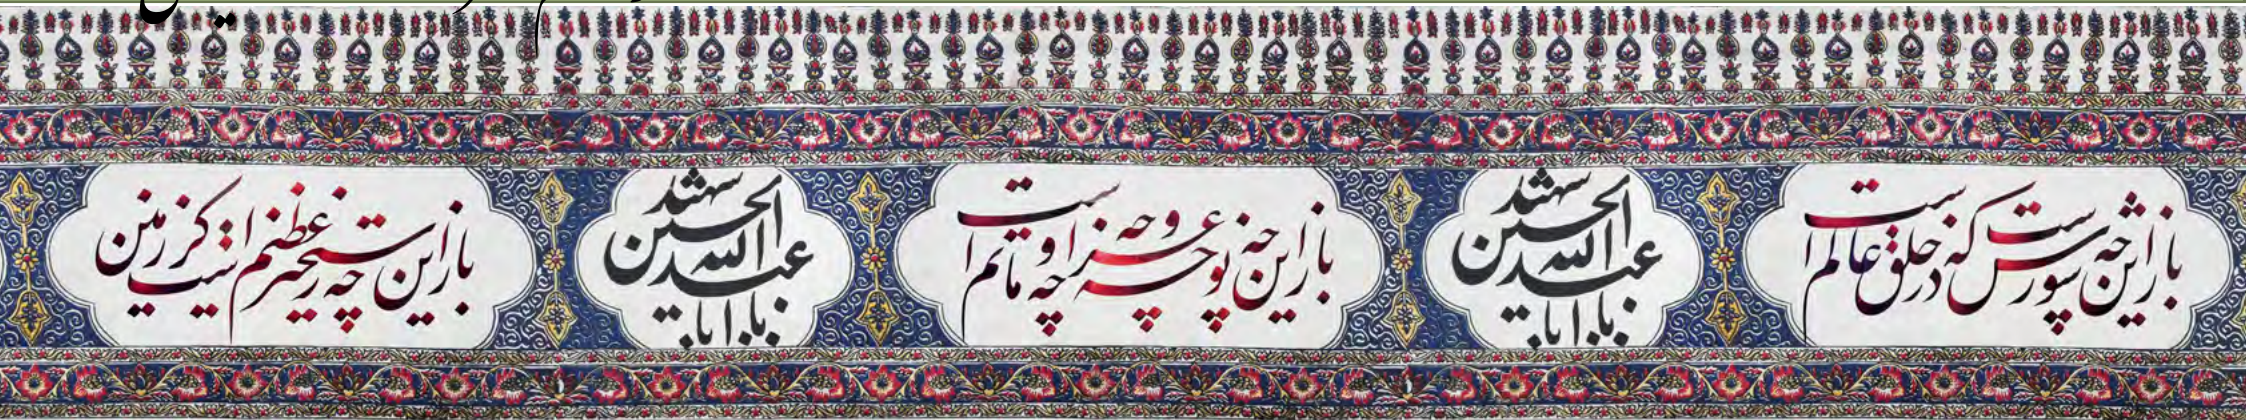 باز این چه شورش است که در خلق عالم است
یا ابا عبدالله الحسین شهید
باز این چه نوحه و چه عزا و چه ماتم است
یا ابا عبدالله الحسین شهید
باز این چه رستخیز عظیم است کز زمین